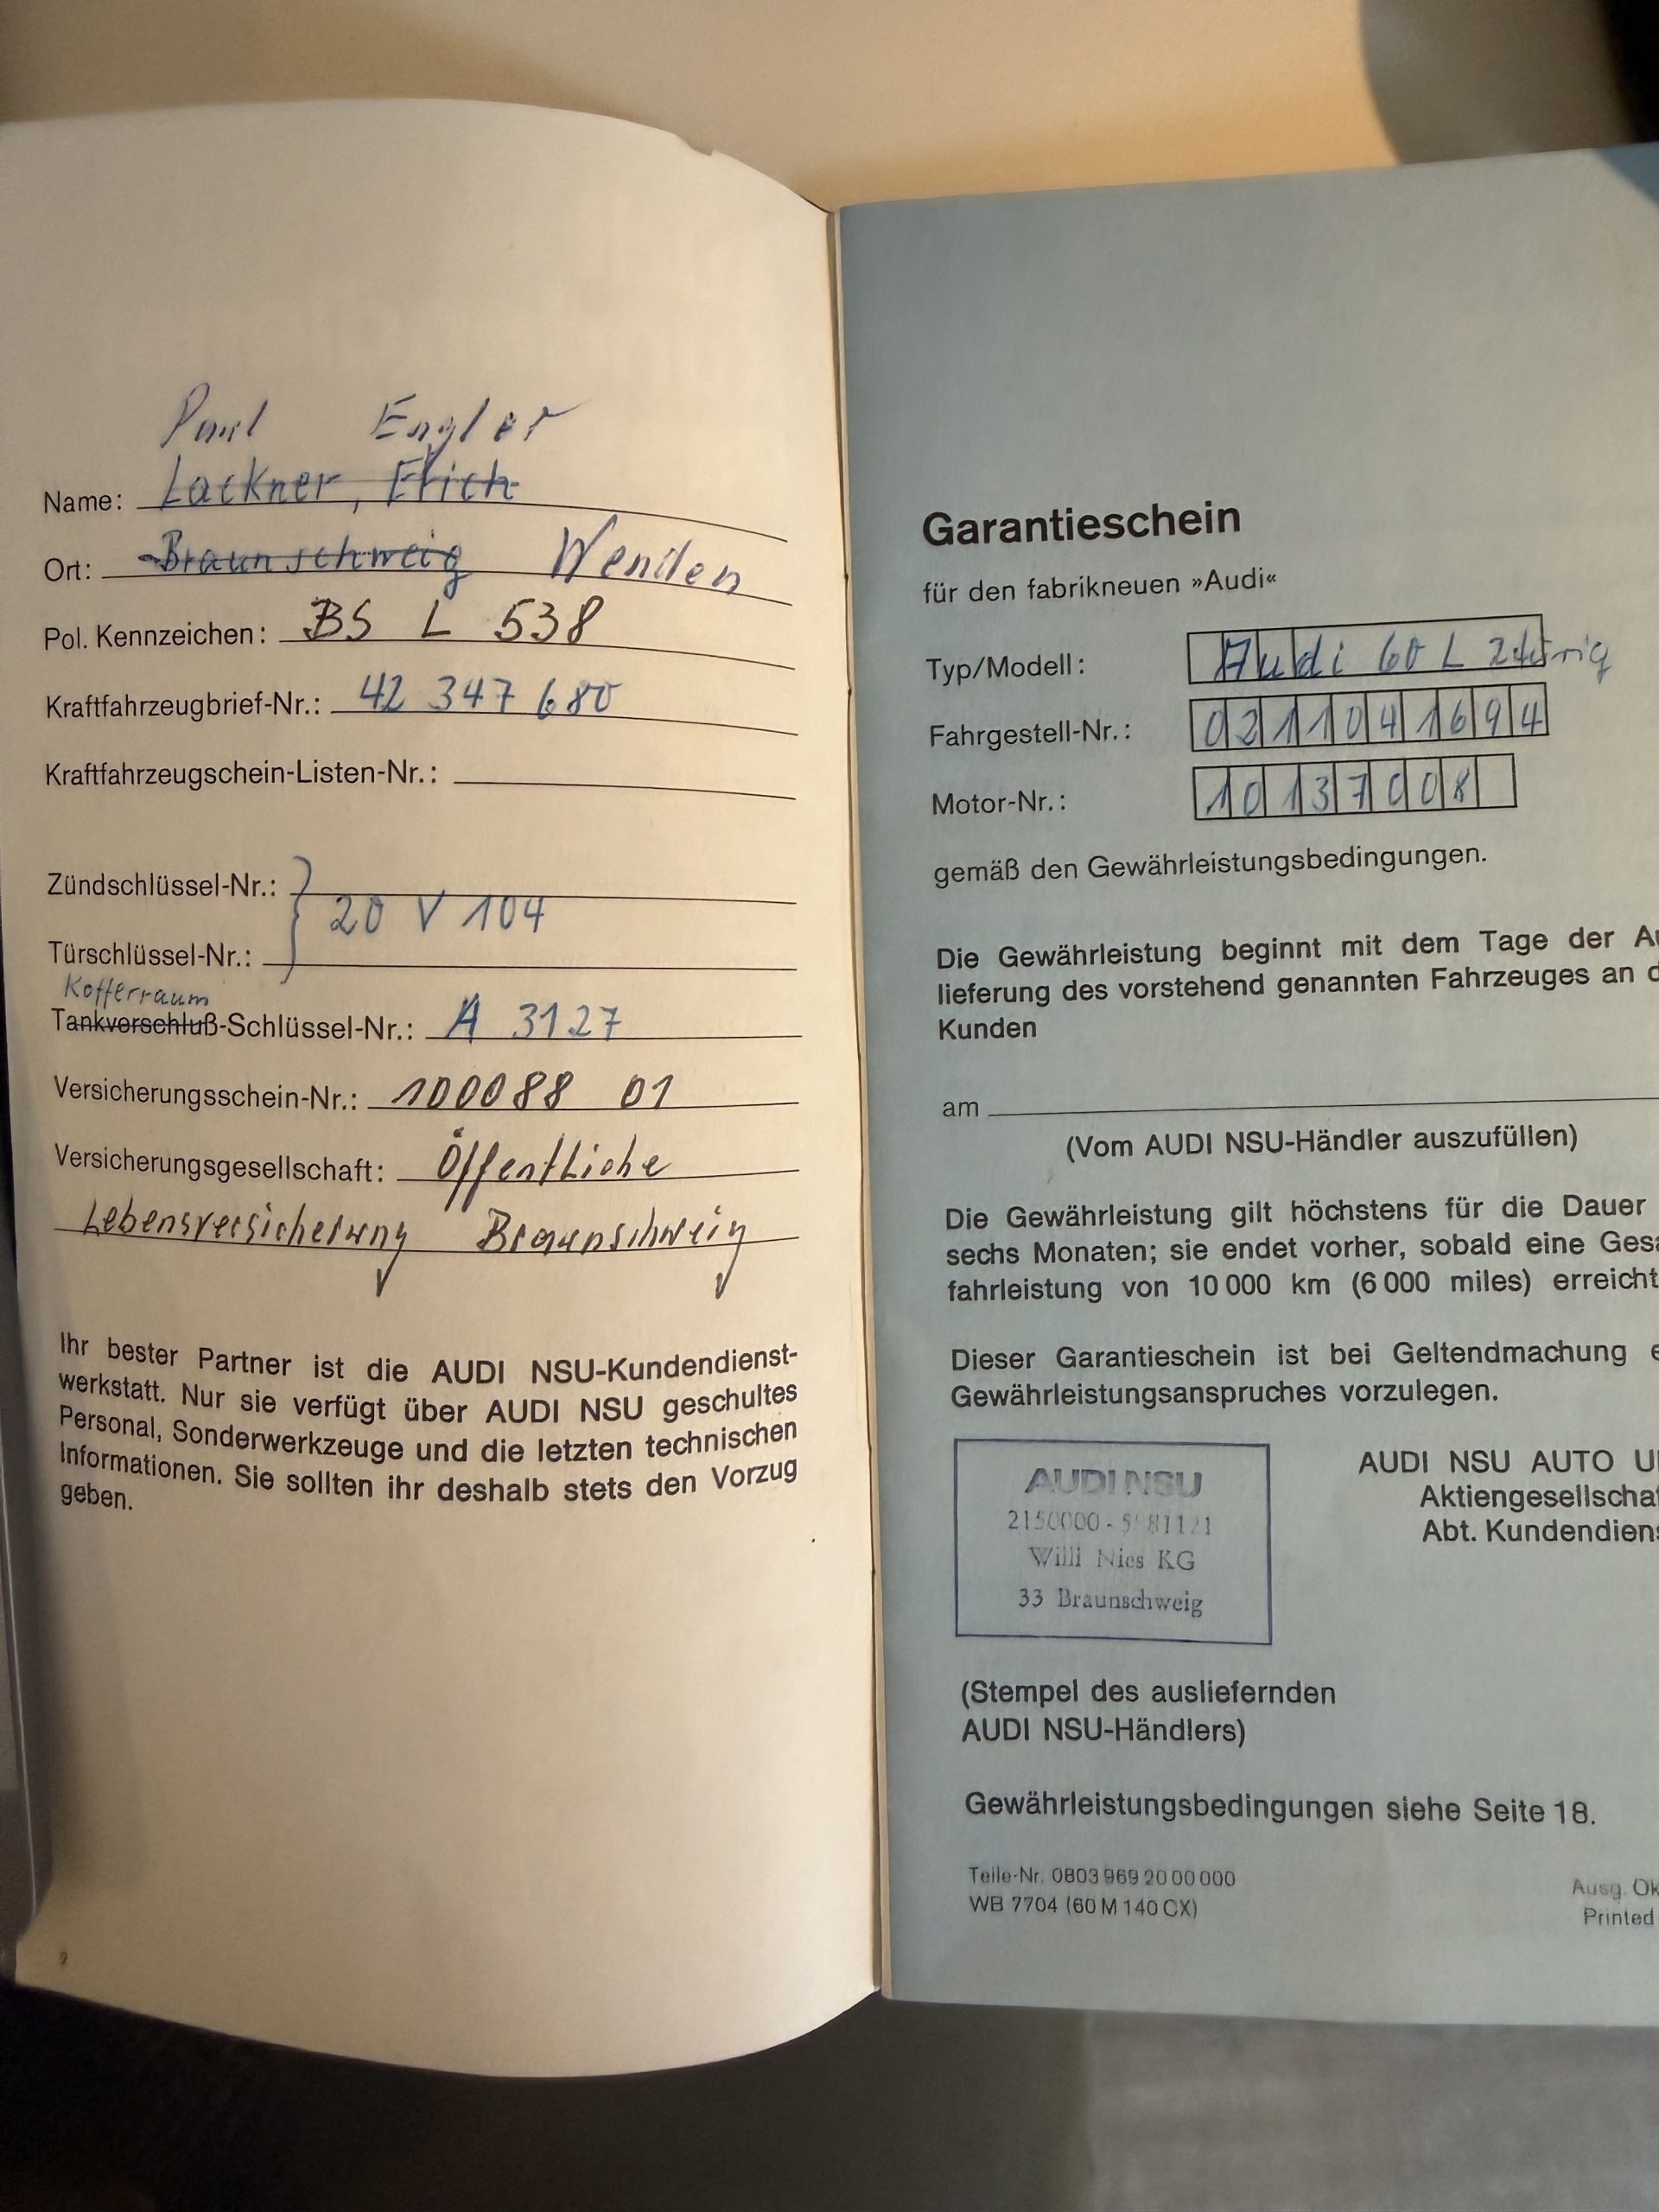 Paul Engler
Name: Lackner, Erich
Ort: Braunschweig Wenden
Pol. Kennzeichen: BS L 538
Kraftfahrzeugbrief-Nr.: 42 347 680
Kraftfahrzeugschein-Listen-Nr.:
Zündschlüssel-Nr.:
20 V 104
Türschlüssel-Nr.:
Kofferraum
Tankverschluß-Schlüssel-Nr.: A 3127
Versicherungsschein-Nr.: 100088 01
Versicherungsgesellschaft: Öffentliche
Lebensversicherung Braunschweig
Ihr bester Partner ist die AUDI NSU-Kundendienst-
werkstatt. Nur sie verfügt über AUDI NSU geschultes
Personal, Sonderwerkzeuge und die letzten technischen
Informationen. Sie sollten ihr deshalb stets den Vorzug
geben.
Garantieschein
für den fabrikneuen »Audi«
Typ/Modell: Audi 60 L 2türig
Fahrgestell-Nr.: 0211041694
Motor-Nr.: 10137008
gemäß den Gewährleistungsbedingungen.
Die Gewährleistung beginnt mit dem Tage der Au
lieferung des vorstehend genannten Fahrzeuges an d
Kunden
am
(Vom AUDI NSU-Händler auszufüllen)
Die Gewährleistung gilt höchstens für die Dauer
sechs Monaten; sie endet vorher, sobald eine Gesa
fahrleistung von 10 000 km (6 000 miles) erreicht
Dieser Garantieschein ist bei Geltendmachung e
Gewährleistungsanspruches vorzulegen.
AUDI NSU
Willi Nies KG
33 Braunschweig
AUDI NSU AUTO U
Aktiengesellscha
Abt. Kundendiens
(Stempel des ausliefernden
AUDI NSU-Händlers)
Gewährleistungsbedingungen siehe Seite 18.
Teile-Nr. 0803 969 20 00 000
WB 7704 (60 M 140 CX)
Ausg. Ok
Printed